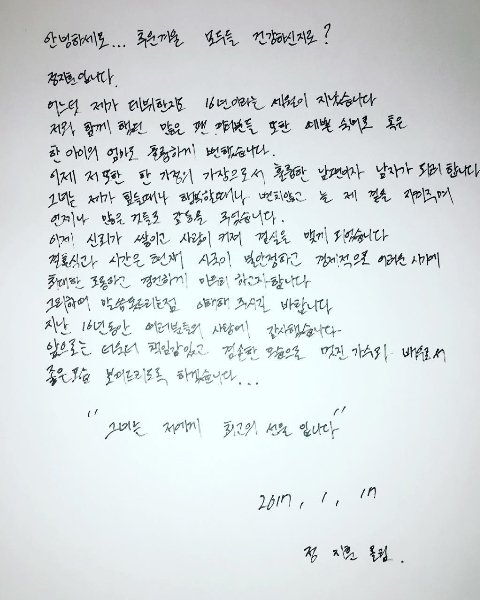 안녕하세요... 혹은기을 모두들 건강하신지요?
정지훈입니다.
어느덧 제가 데뷔한지도 16년이라는 세월이 지났습니다
저와 함께 했던 많은 팬 여러분들 또한 예쁜 숙녀로 혹은
한 아이의 엄마로 훌륭하게 변했습니다.
이제 저 또한 한 가정의 가장으로서 훌륭한 남편이자 남자가 되려 합니다
그녀는 제가 힘들때나 행복할때나 변치않고 늘 제 곁을 지켜주며
언제나 많은 것들로 감동을 주었습니다.
이제 신뢰가 쌓이고 사랑이 커져 결실을 맺게 되었습니다
결혼식과 시간은 현재 시국이 불안정하고 경제적으로 어려운 시기에
최대한 조용하고 경건하게 치르려 하고자합니다
그리하여 말씀못드리는점 이해해 주시길 바랍니다
지난 16년동안 여러분들의 사랑에 감사했습니다
앞으로는 더욱더 책임감있고 겸손한 모습으로 멋진 가수와 배우로서
좋은모습 보여드리도록 하겠습니다...
"그녀는 저에게 최고의 선물 입니다"
2017. 1. 17
정 지훈 올림.